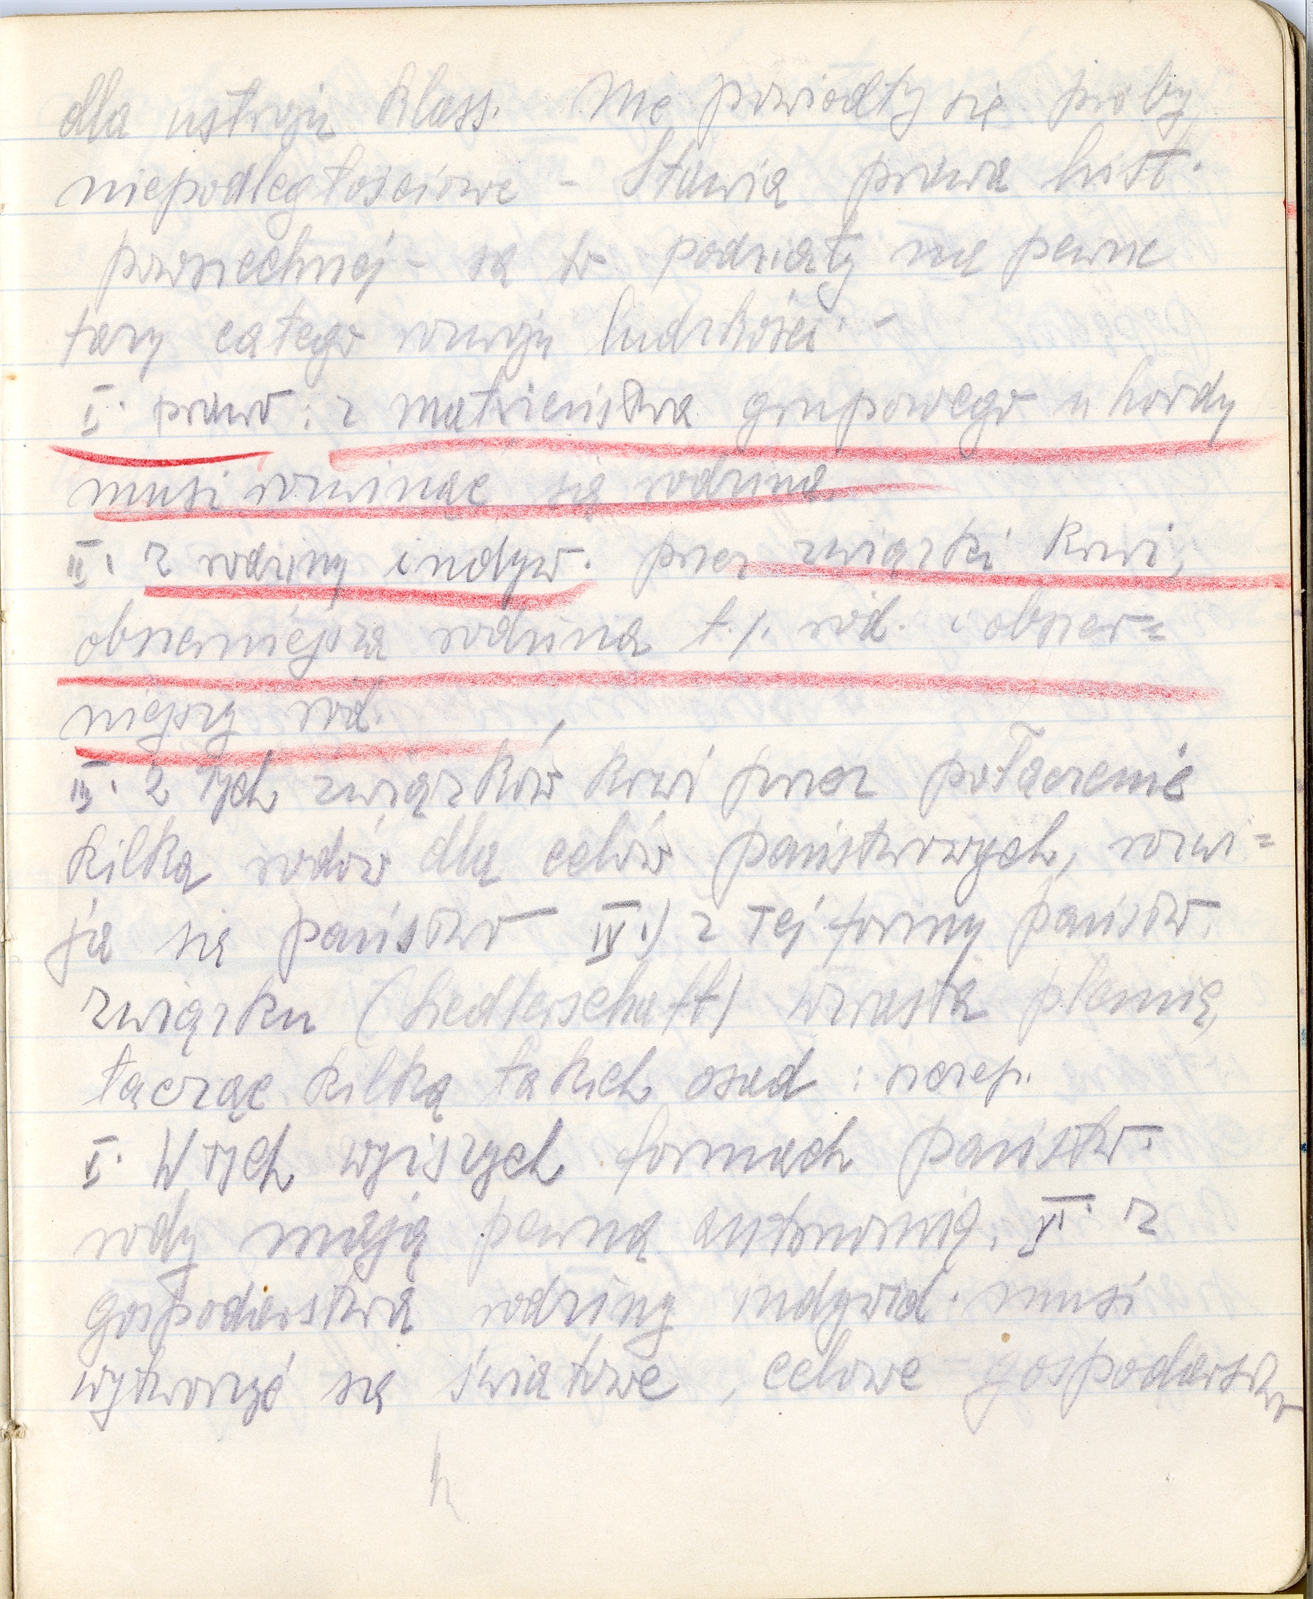 dla ustroju klass. Nie powiodły się próby
niepodległościowe - Stawia prawa hist.
powszechnej - są to podziały na pewne
fazy całego rozwoju ludzkości -
I. prawo: z małżeństwa grupowego u hordy
musi rozwinąć się rodzina
II. z rodziny indyw. przez związki krwi,
obszerniejsza rodzina t.j. ród. i obszer=
niejszy ród.
III. z tych związków krwi przez połączenie
kilka rodów dla celów państwowych, rozwi=
ja się państwo IV.) z tej formy państw.
związku (Siedlerschaft) wzrasta plemię,
łącząc kilka takich osad : szczep.
V. W tych wyższych formach państw.
rody mają pewną autonomię. VI. z
gospodarstwa rodziny indywid. musi
wytworzyć się światowe, celowe gospodarstwo